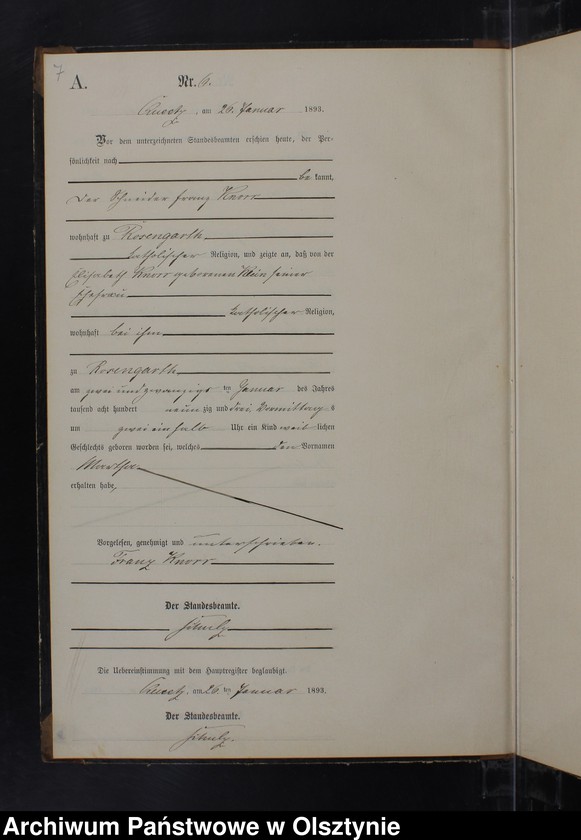 7
A. Nr. 6.
Queetz, am 26. Januar 1893.
Vor dem unterzeichneten Standesbeamten erschien heute, der Per-
sönlichkeit nach
be kannt,
der Schneider Franz Knorr
wohnhaft zu Rosengarth
katholischer Religion, und zeigte an, daß von der
Elisabeth Knorr geborenen Klein seiner
Ehefrau
katholischer Religion,
wohnhaft bei ihm
zu Rosengarth
am zwei und zwanzigsten Januar des Jahres
tausend acht hundert neun zig und drei, Vormittags
um zwei ein halb Uhr ein Kind weib lichen
Geschlechts geboren worden sei, welches den Vornamen
Martha
erhalten habe,
Vorgelesen, genehmigt und unterschrieben.
Franz Knorr
Der Standesbeamte.
Die Uebereinstimmung mit dem Hauptregister beglaubigt.
Queetz, am 26. ten Januar 1893.
Der Standesbeamte.
Archiwum Państwowe w Olsztynie